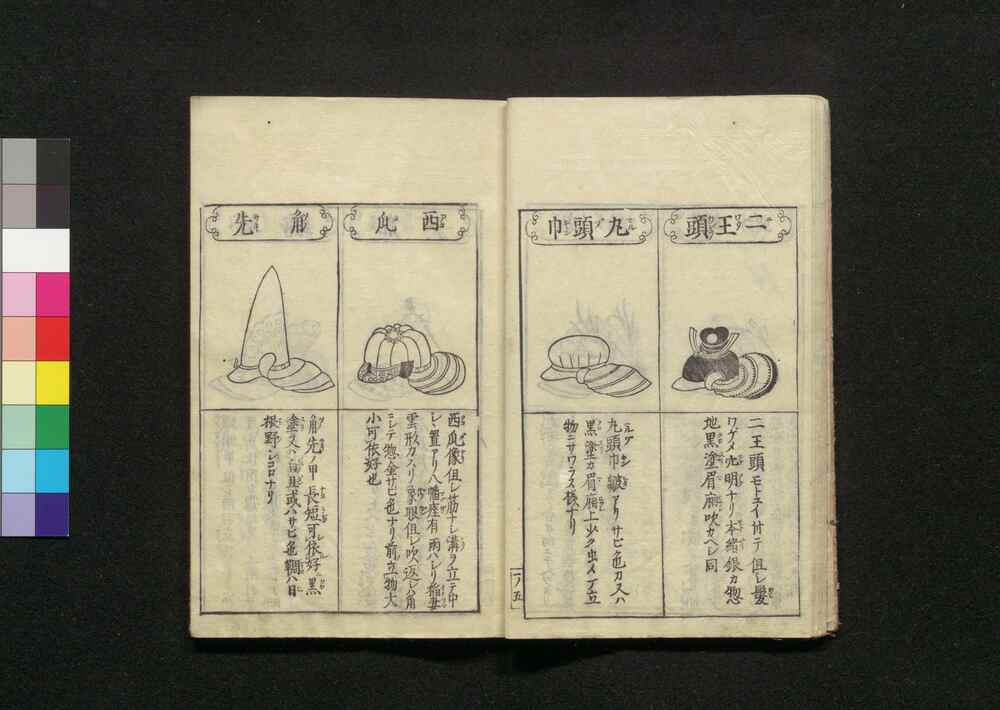 二王頭
二王頭モトユイ付テ但レ髪
ワゲメ光明ナリ本緒銀カ惣
地黒塗眉廂吹カヘシ同
丸頭巾
丸頭巾皺アリサビ色カ又ハ
黒塗カ眉廂上少ク出メ丁立
物ニサワラス様ナリ
一ノ五
西瓜
西瓜像但レ筋ナレ溝ヲ立テ中
レ置アリ八幡座有雨ハレリ稲妻
雲形カスリ象眼但レ吹返レハ角
ニレテ惣金サビ色ナリ前立物大
小可依好也
觧先
觧先ノ甲長短可依好黒
塗又ハ白且或ハサビ色錣ハ日
根野シコロナリ